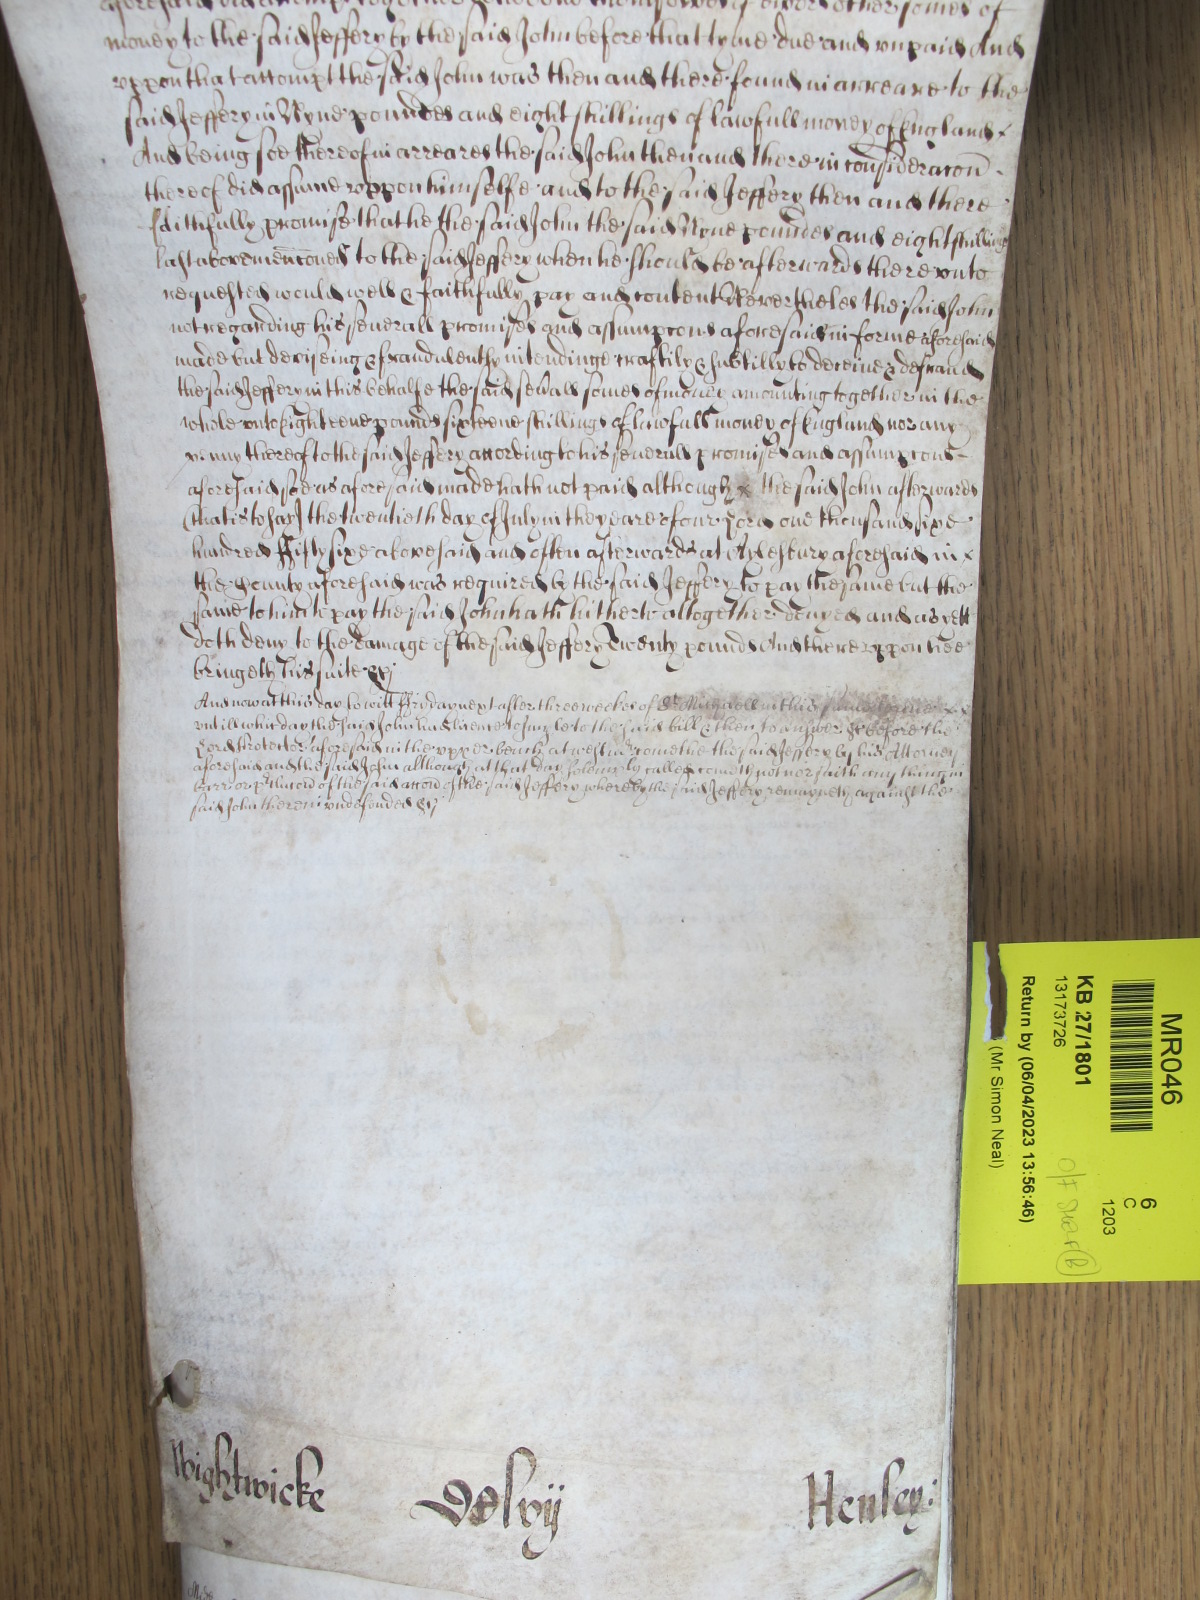 aforesaid did attempt together of divers other somes of
money to the said Jeffery by the said John before that tyme due and unpaid And
uppon that attompt the said John was then and there found in arreare to the
said Jeffery in Nyne poundes and eight shillings of lawfull money of England
And being soe thereof in arreares the said John then and there in consideracon
thereof did assume uppon himselfe and to the said Jeffery then and there
faithfully promise that he the said John the said Nyne poundes and eight shillings
last abovemencioned to the said Jeffery when he should be afterwards thereunto
requested would well & faithfully pay and content Nevertheles the said John
not regarding his severall promises and assumpcons aforesaid in forme aforesaid
made but deviseing & fraudulently intendinge craftily & subtilly to deceive & defraud
the said Jeffery in this behalfe the said sevall somes of money amounting together in the
whole unto Eighteene pounds sixteene shillings of lawfull money of England nor any
peny thereof to the said Jeffery according to his severall promises and assumpcons
aforesaid soe as aforesaid made hath not paid although the said John afterwards
(that is to say) the twentieth day of July in the yeare of our Lord one thousand sixe
hundred Fifty sixe abovesaid and often afterwards at Aylesbury aforesaid in
the County aforesaid was required by the said Jeffery to pay the same but the
same to him to pay the said John hath hitherto altogether denyed and as yett
doth deny to the damage of the said Jeffery Twenty pounds And thereuppon hee
bringeth his suite &c
And now at this day to witt Fryday next after three weekes of St Michaell in this same terme
untill which day the said John had licence to imparle to the said bill & then to answer &c before the
Lord Protector aforesaid in the upper bench at Westmr come the the said Jeffery by his Attorney
aforesaid and the said John although at that day solemply called cometh not nor saith any thing in
barr or p of the said accon of the said Jeffery whereby the said Jeffery remayneth against the
said John therein undefended &c
Wightwicke
Dclvij
Henley:
MR046
6
C
1203
KB 27/1801
13173726
O/F
Return by (06/04/2023 13:56:46)
(Mr Simon Neal)